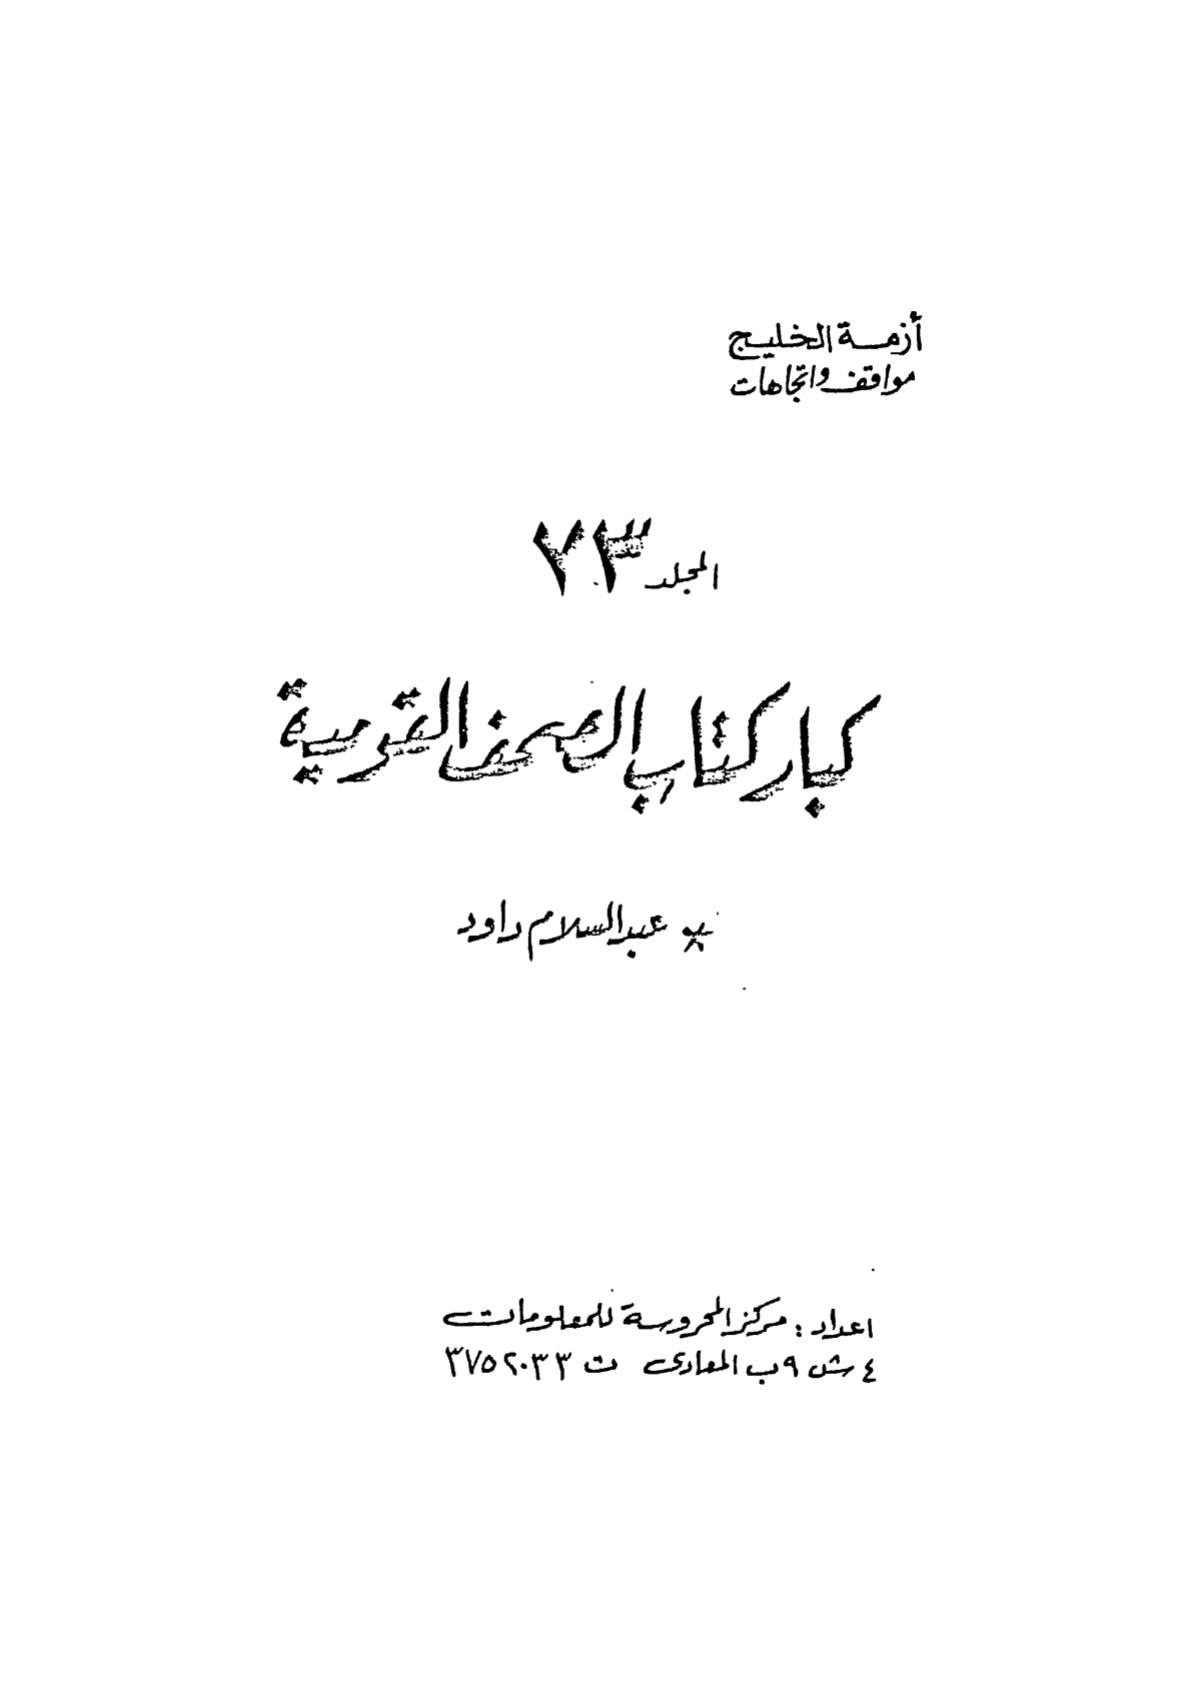 أزمة الخليج
مواقف واتجاهات
المجلد ٧٣
كبار كتاب الصحف القومية
* عبد السلام داود
اعداد : مركز المحروسة للمعلومات
٤ ش ٩ ب المعادى ت ٣٧٥٢٠٣٣